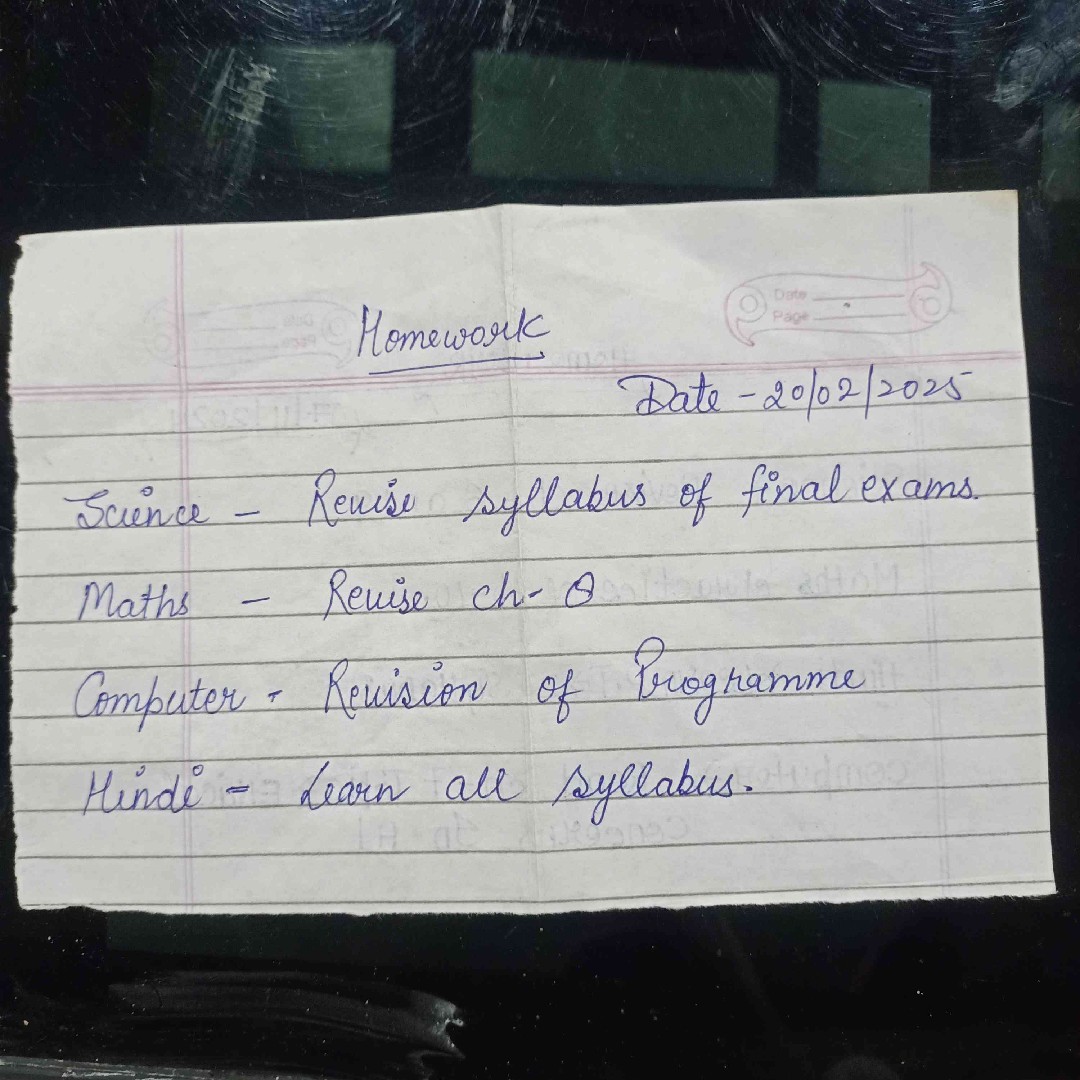 Date
Page
Homework
Date - 20/02/2025
Science - Revise syllabus of final exams.
Maths - Revise ch-
Computer - Revision of Programme
Hindi - Learn all syllabus.